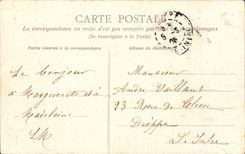 CARTE POSTALE
La correspondance au recto n'est pas acceptée par tous les pays étrangers
(Se renseigner à la Poste)
Partie réservée à la correspondance
Adresse du destinataire
Le bonjour
à Marguerite et à
Madeleine
Monsieur
André Vaillant
23 Rue de
Dieppe
S. Infre